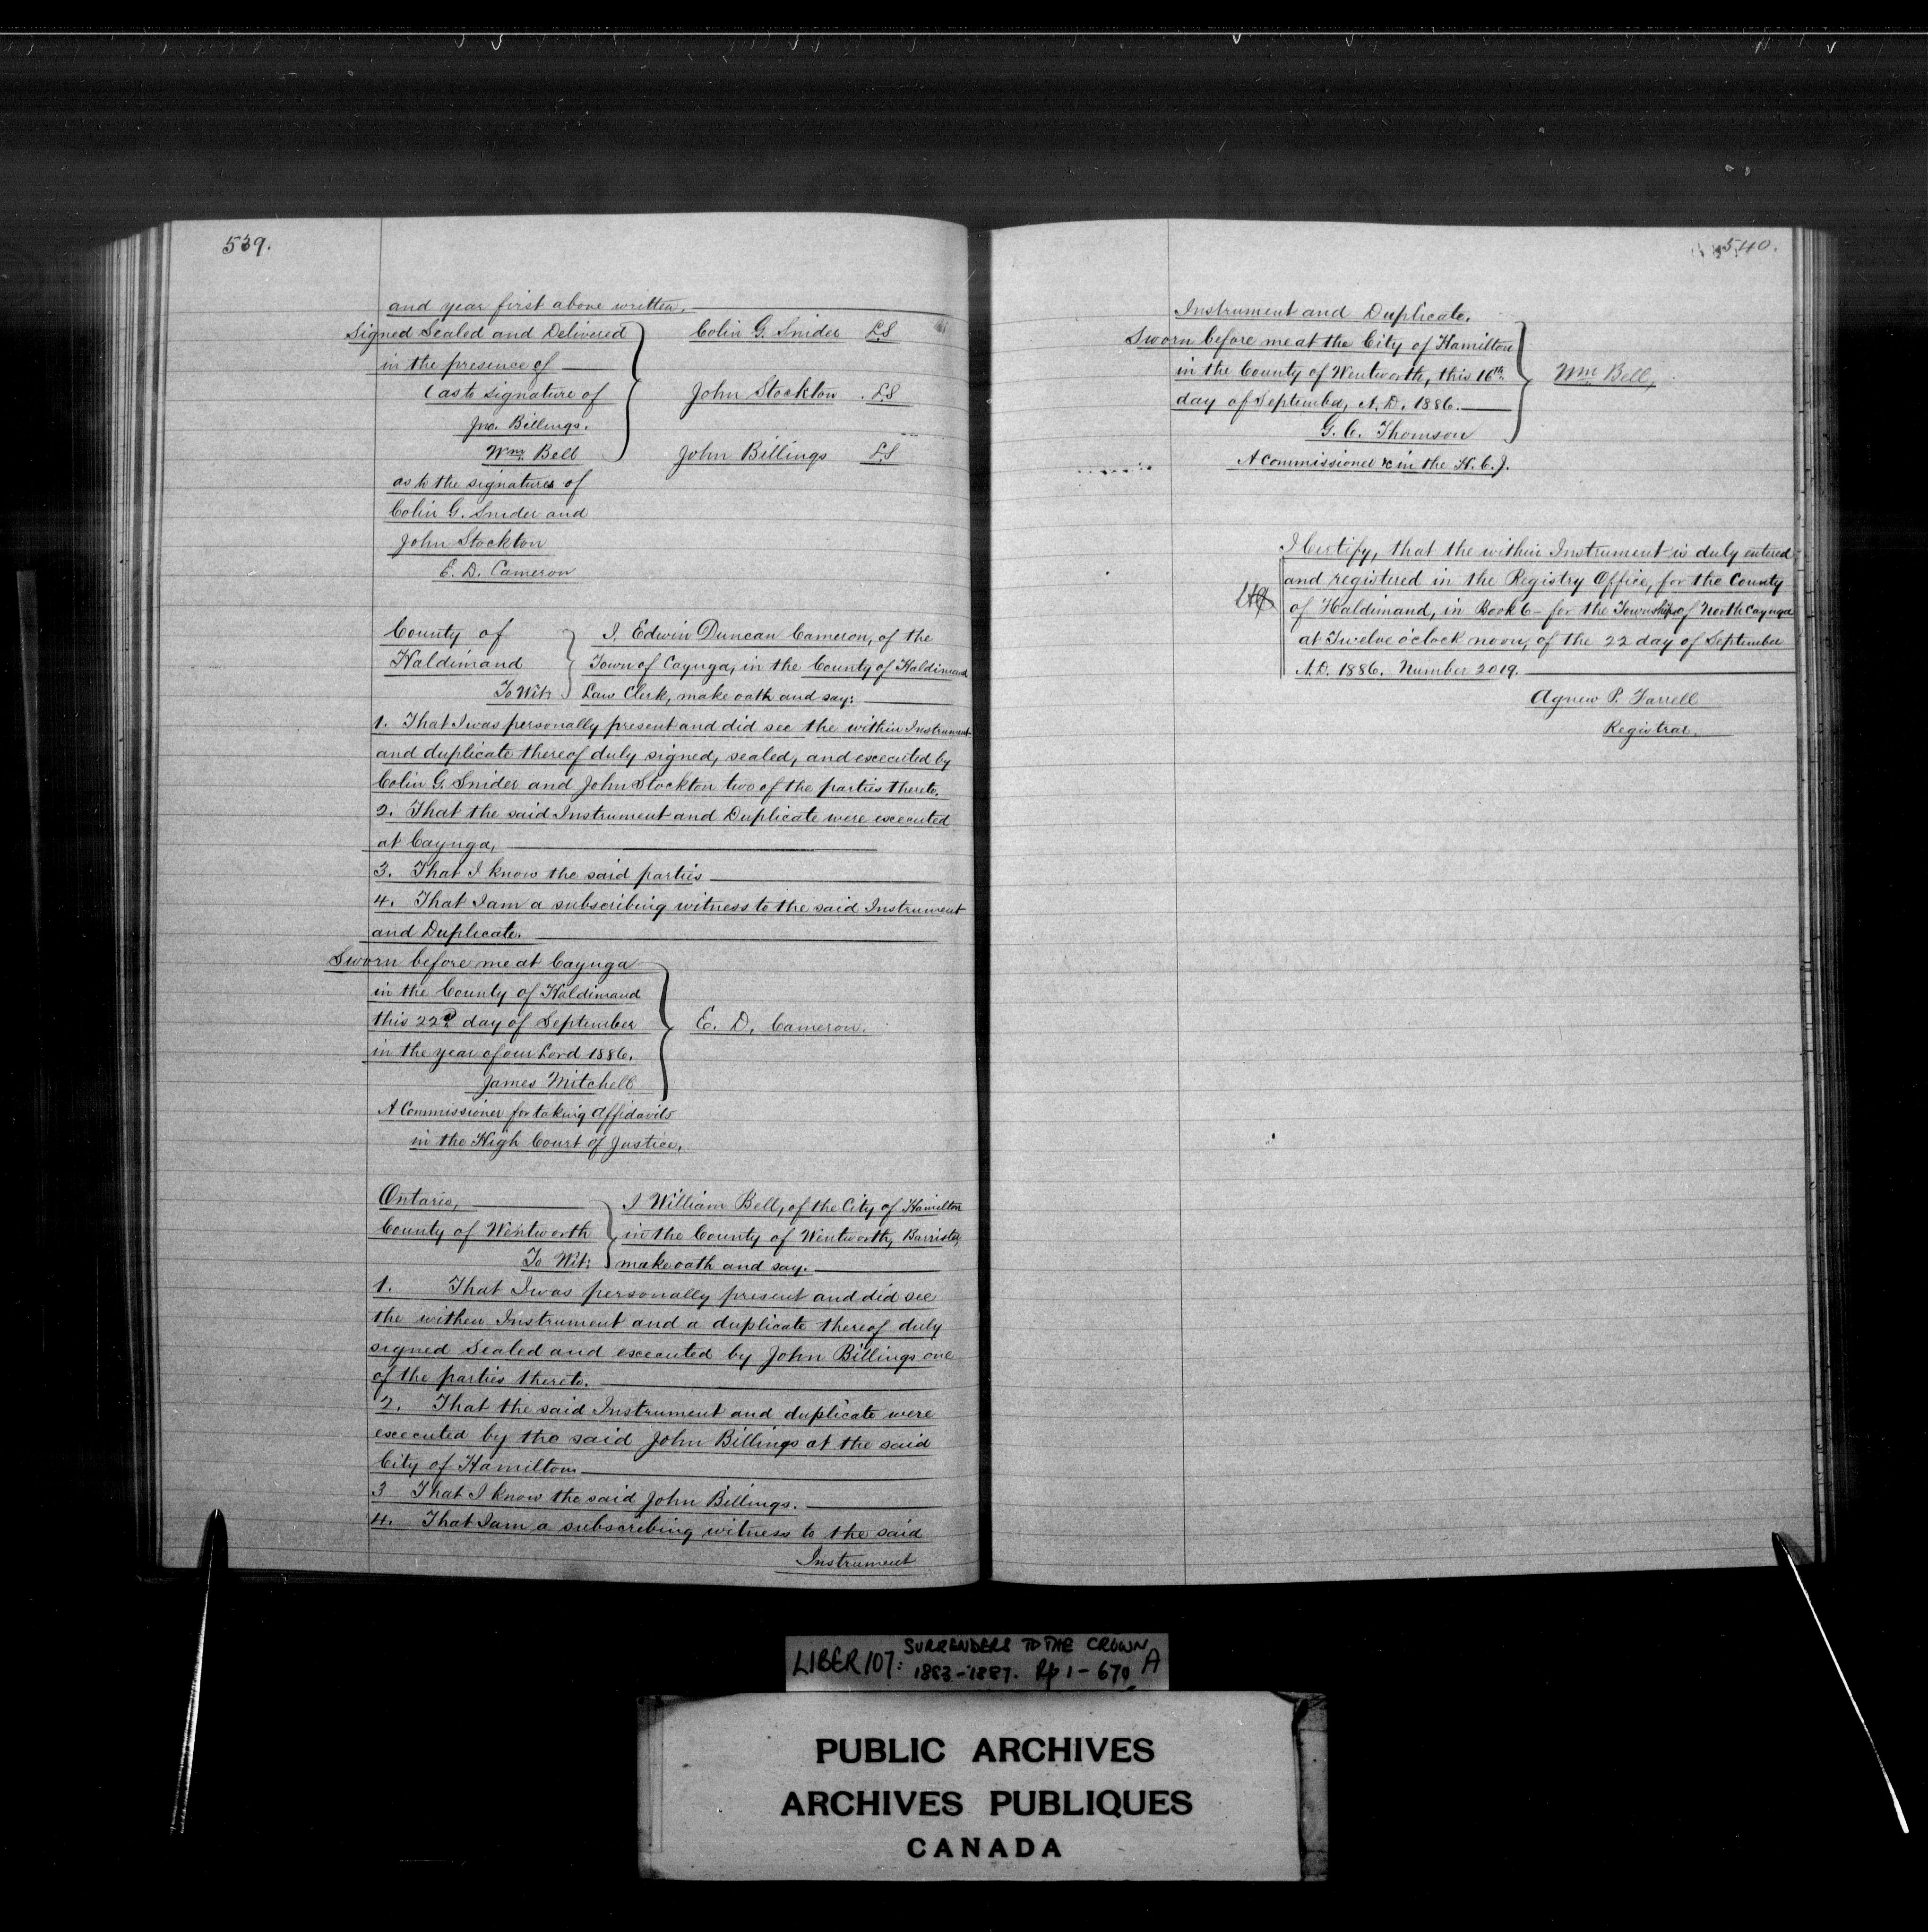 539.
and year first above written.
Signed Sealed and Delivered
in the presence of
(as to signature of
Jno. Billings.
Wm. Bell
as to the signatures of
Colin G. Snider and
John Stockton
E. D. Cameron
Colin G. Snider L.S
John Stockton L.S
John Billings L.S
County of
Haldimand
To Wit:
I, Edwin Duncan Cameron, of the
Town of Cayuga, in the County of Haldimand
Law Clerk, make oath and say:
1. That I was personally present and did see the within Instrument
and duplicate thereof duly signed, sealed, and excecuted by
Colin G. Snider and John Stockton two of the parties thereto.
2. That the said Instrument and Duplicate were excecuted
at Cayuga,
3. That I know the said parties
4. That I am a subscribing witness to the said Instrument
and Duplicate.
Sworn before me at Cayuga
in the County of Haldimand
this 22d day of September
in the year of our Lord 1886.
James Mitchell
A Commissioner for taking Affidavits
in the High Court of Justice.
E. D. Cameron.
Ontario,
County of Wentworth
To Wit:
I William Bell, of the City of Hamilton
in the County of Wentworth, Barrister,
make oath and say.
1. That I was personally present and did see
the within Instrument and a duplicate thereof duly
signed Sealed and excecuted by John Billings one
of the parties thereto.
2. That the said Instrument and duplicate were
excecuted by the said John Billings at the said
City of Hamilton
3 That I know the said John Billings.
4. That I am a subscribing witness to the said
Instrument
540.
Instrument and Duplicate.
Sworn before me at the City of Hamilton
in the County of Wentworth, this 16th
day of September, A.D. 1886.
G. C. Thomson
A Commissioner &c in the H. C. J.
Wm Bell,
I Certify, that the within Instrument is duly entered
and registered in the Registry Office, for the County
of Haldimand, in Book 6 - for the Township of North Cayuga
at Twelve o'clock noon, of the 22 day of September
A.D. 1886. Number 2019.
Agnew P. Farrell
Registrar.
LIBER 107: SURRENDERS TO THE CROWN
1883-1887. Pp 1 - 670 A
PUBLIC ARCHIVES
ARCHIVES PUBLIQUES
CANADA